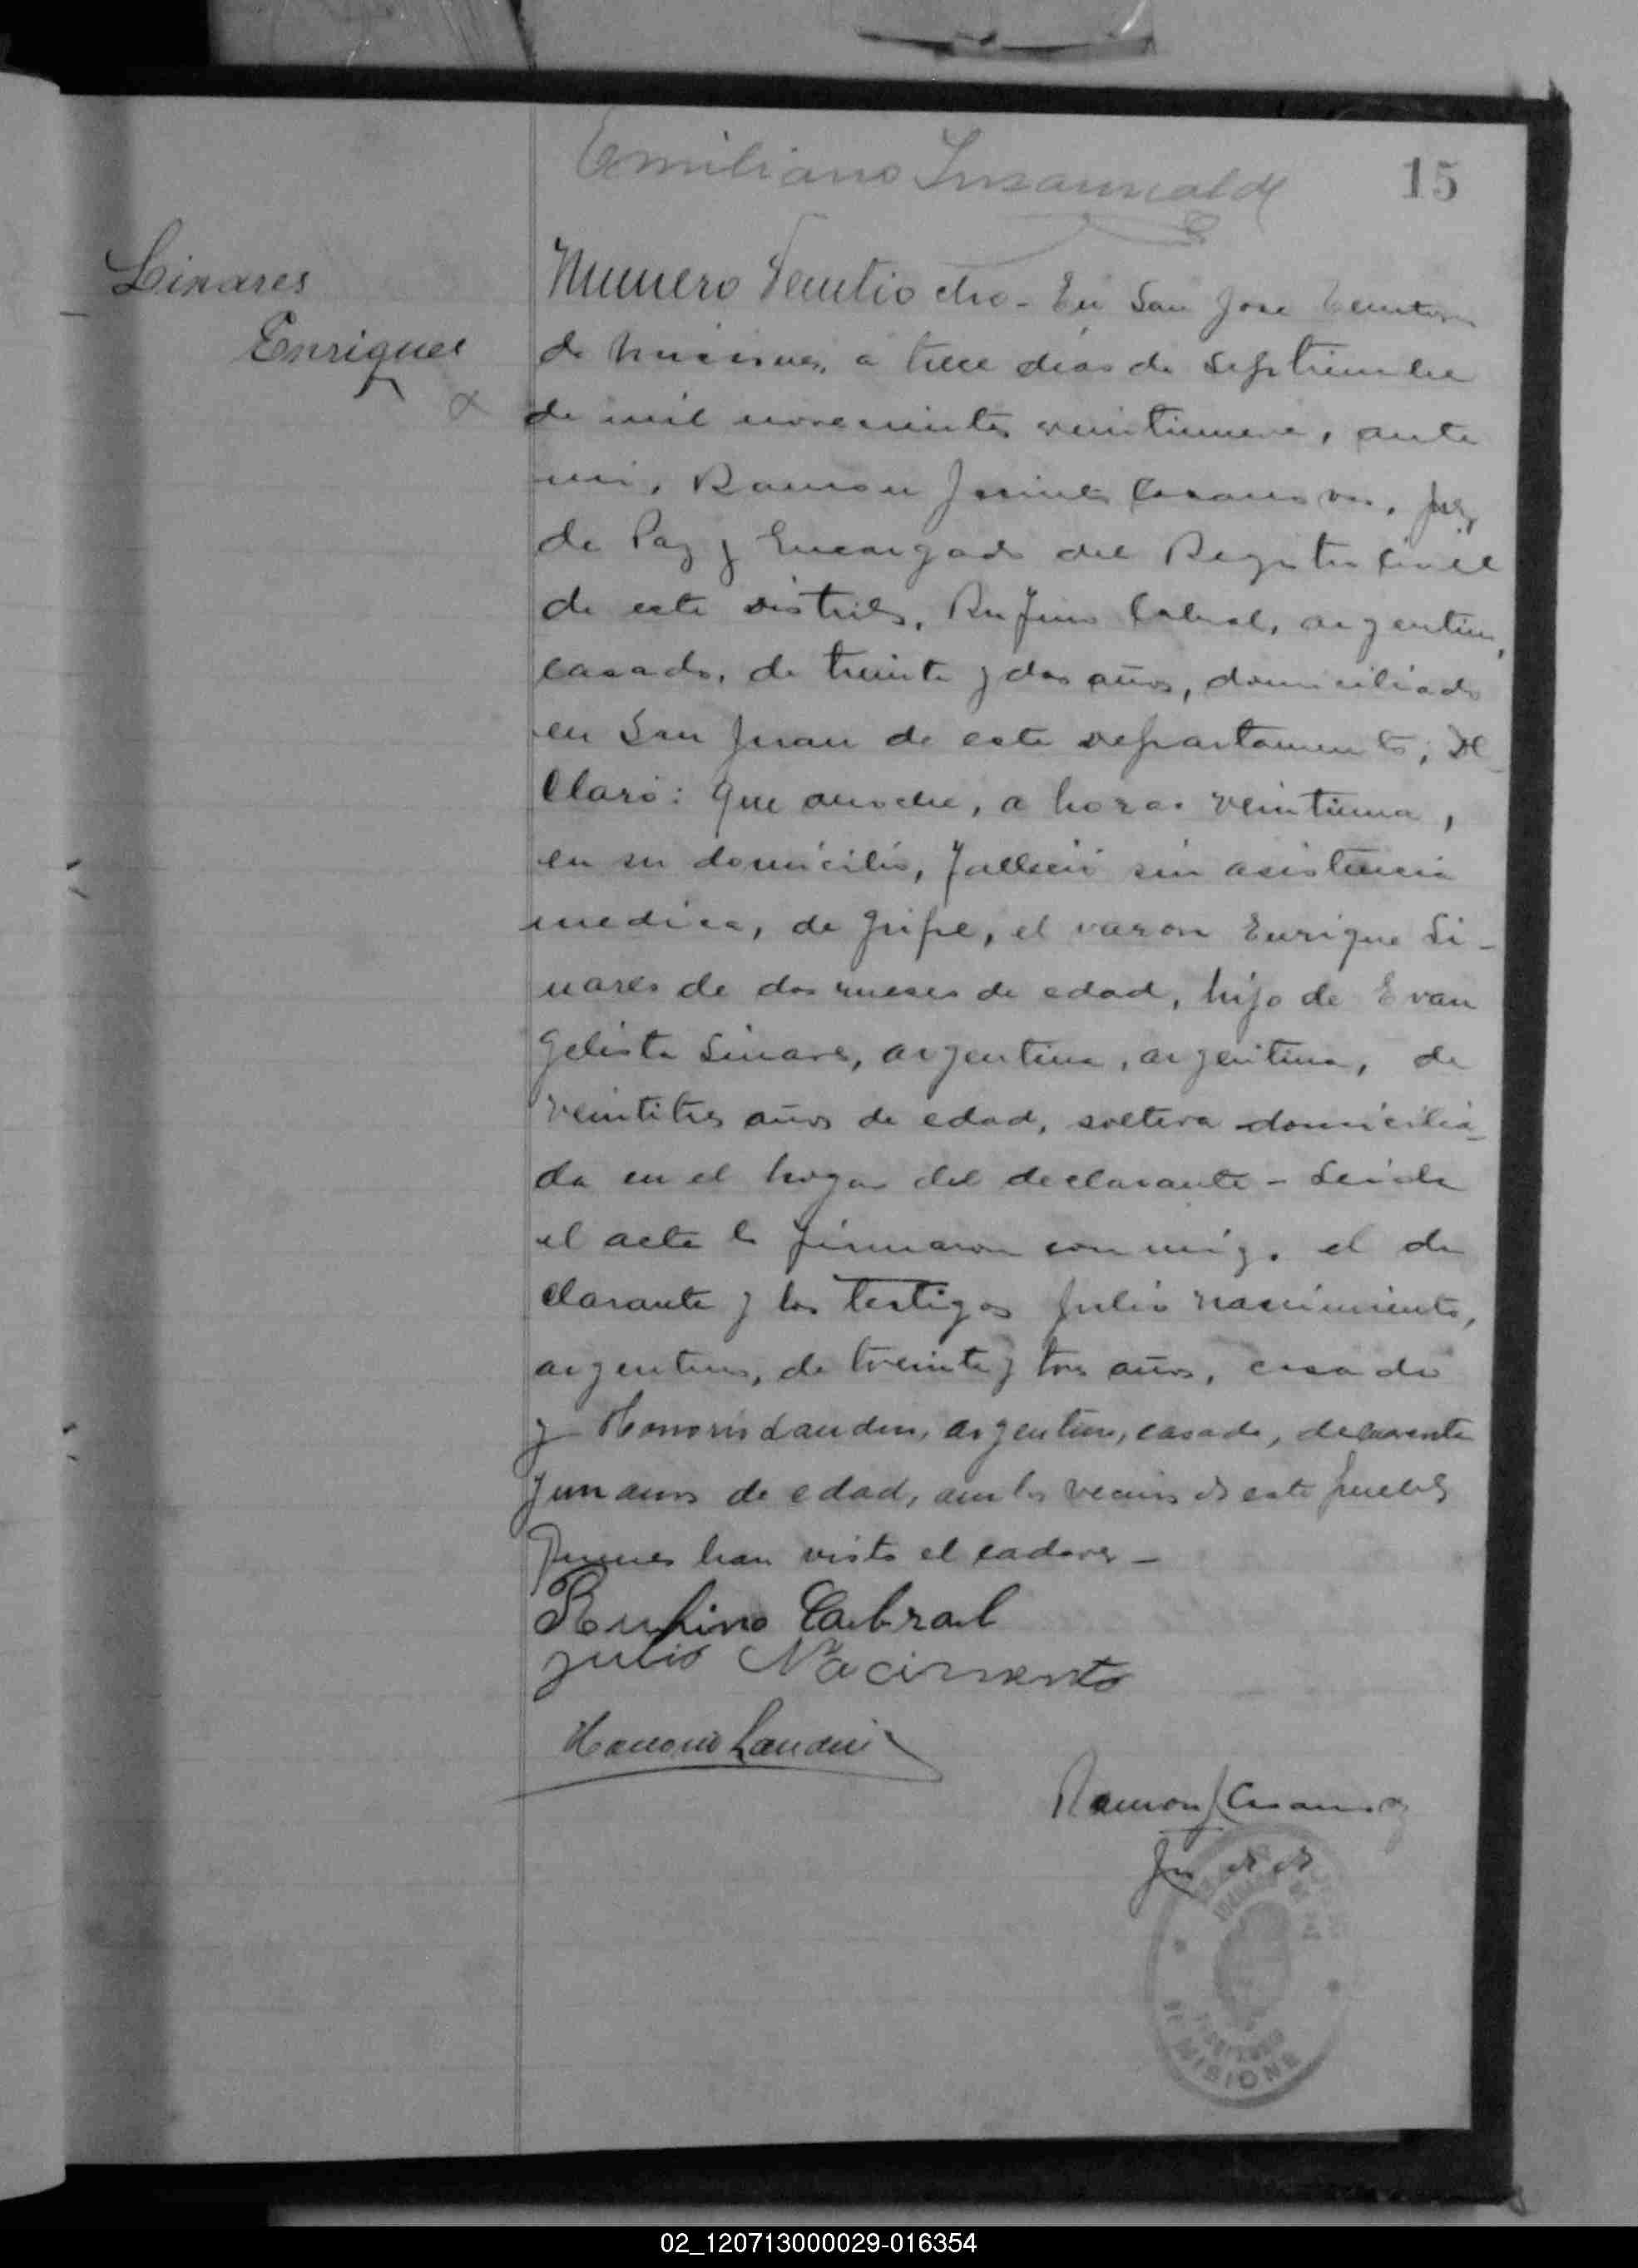 Emiliano
15
Linares
Enrique
Numero Veintiocho - En San Jose Territorio
de Misiones, a trece dias de Septiembre
de mil novecientos veintinueve, ante
mi, Ramon Jacinto Casanova, Juez
de Paz y Encargado del Registro Civil
de este distrito, Rufino Cabral, argentino,
casado, de treinta y dos años, domiciliado
en San Juan de este departamento; De
claró: Que anoche, a horas veintiuna,
en su domicilio, falleció sin asistencia
medica, de gripe, el varon Enrique Li-
nares de dos meses de edad, hijo de Evan
gelista Linares, argentina, argentina, de
veintitres años de edad, soltera domicilia-
da en el hogar del declarante - Leida
el acta la firmaron conmigo el de
clarante y los testigos Julio Nacimiento,
argentino, de treinta y tres años, casado
y Honorio Landini, argentino, casado, de cuarenta
y un anos de edad, ambos vecinos de este pueblo
quienes han visto el cadaver -
Rufino Cabral
Julio Nacimento
Honorio Landini
Ramon J Casanova
Juez de Paz
TERRITORIO
DE MISIONES
02_120713000029-016354